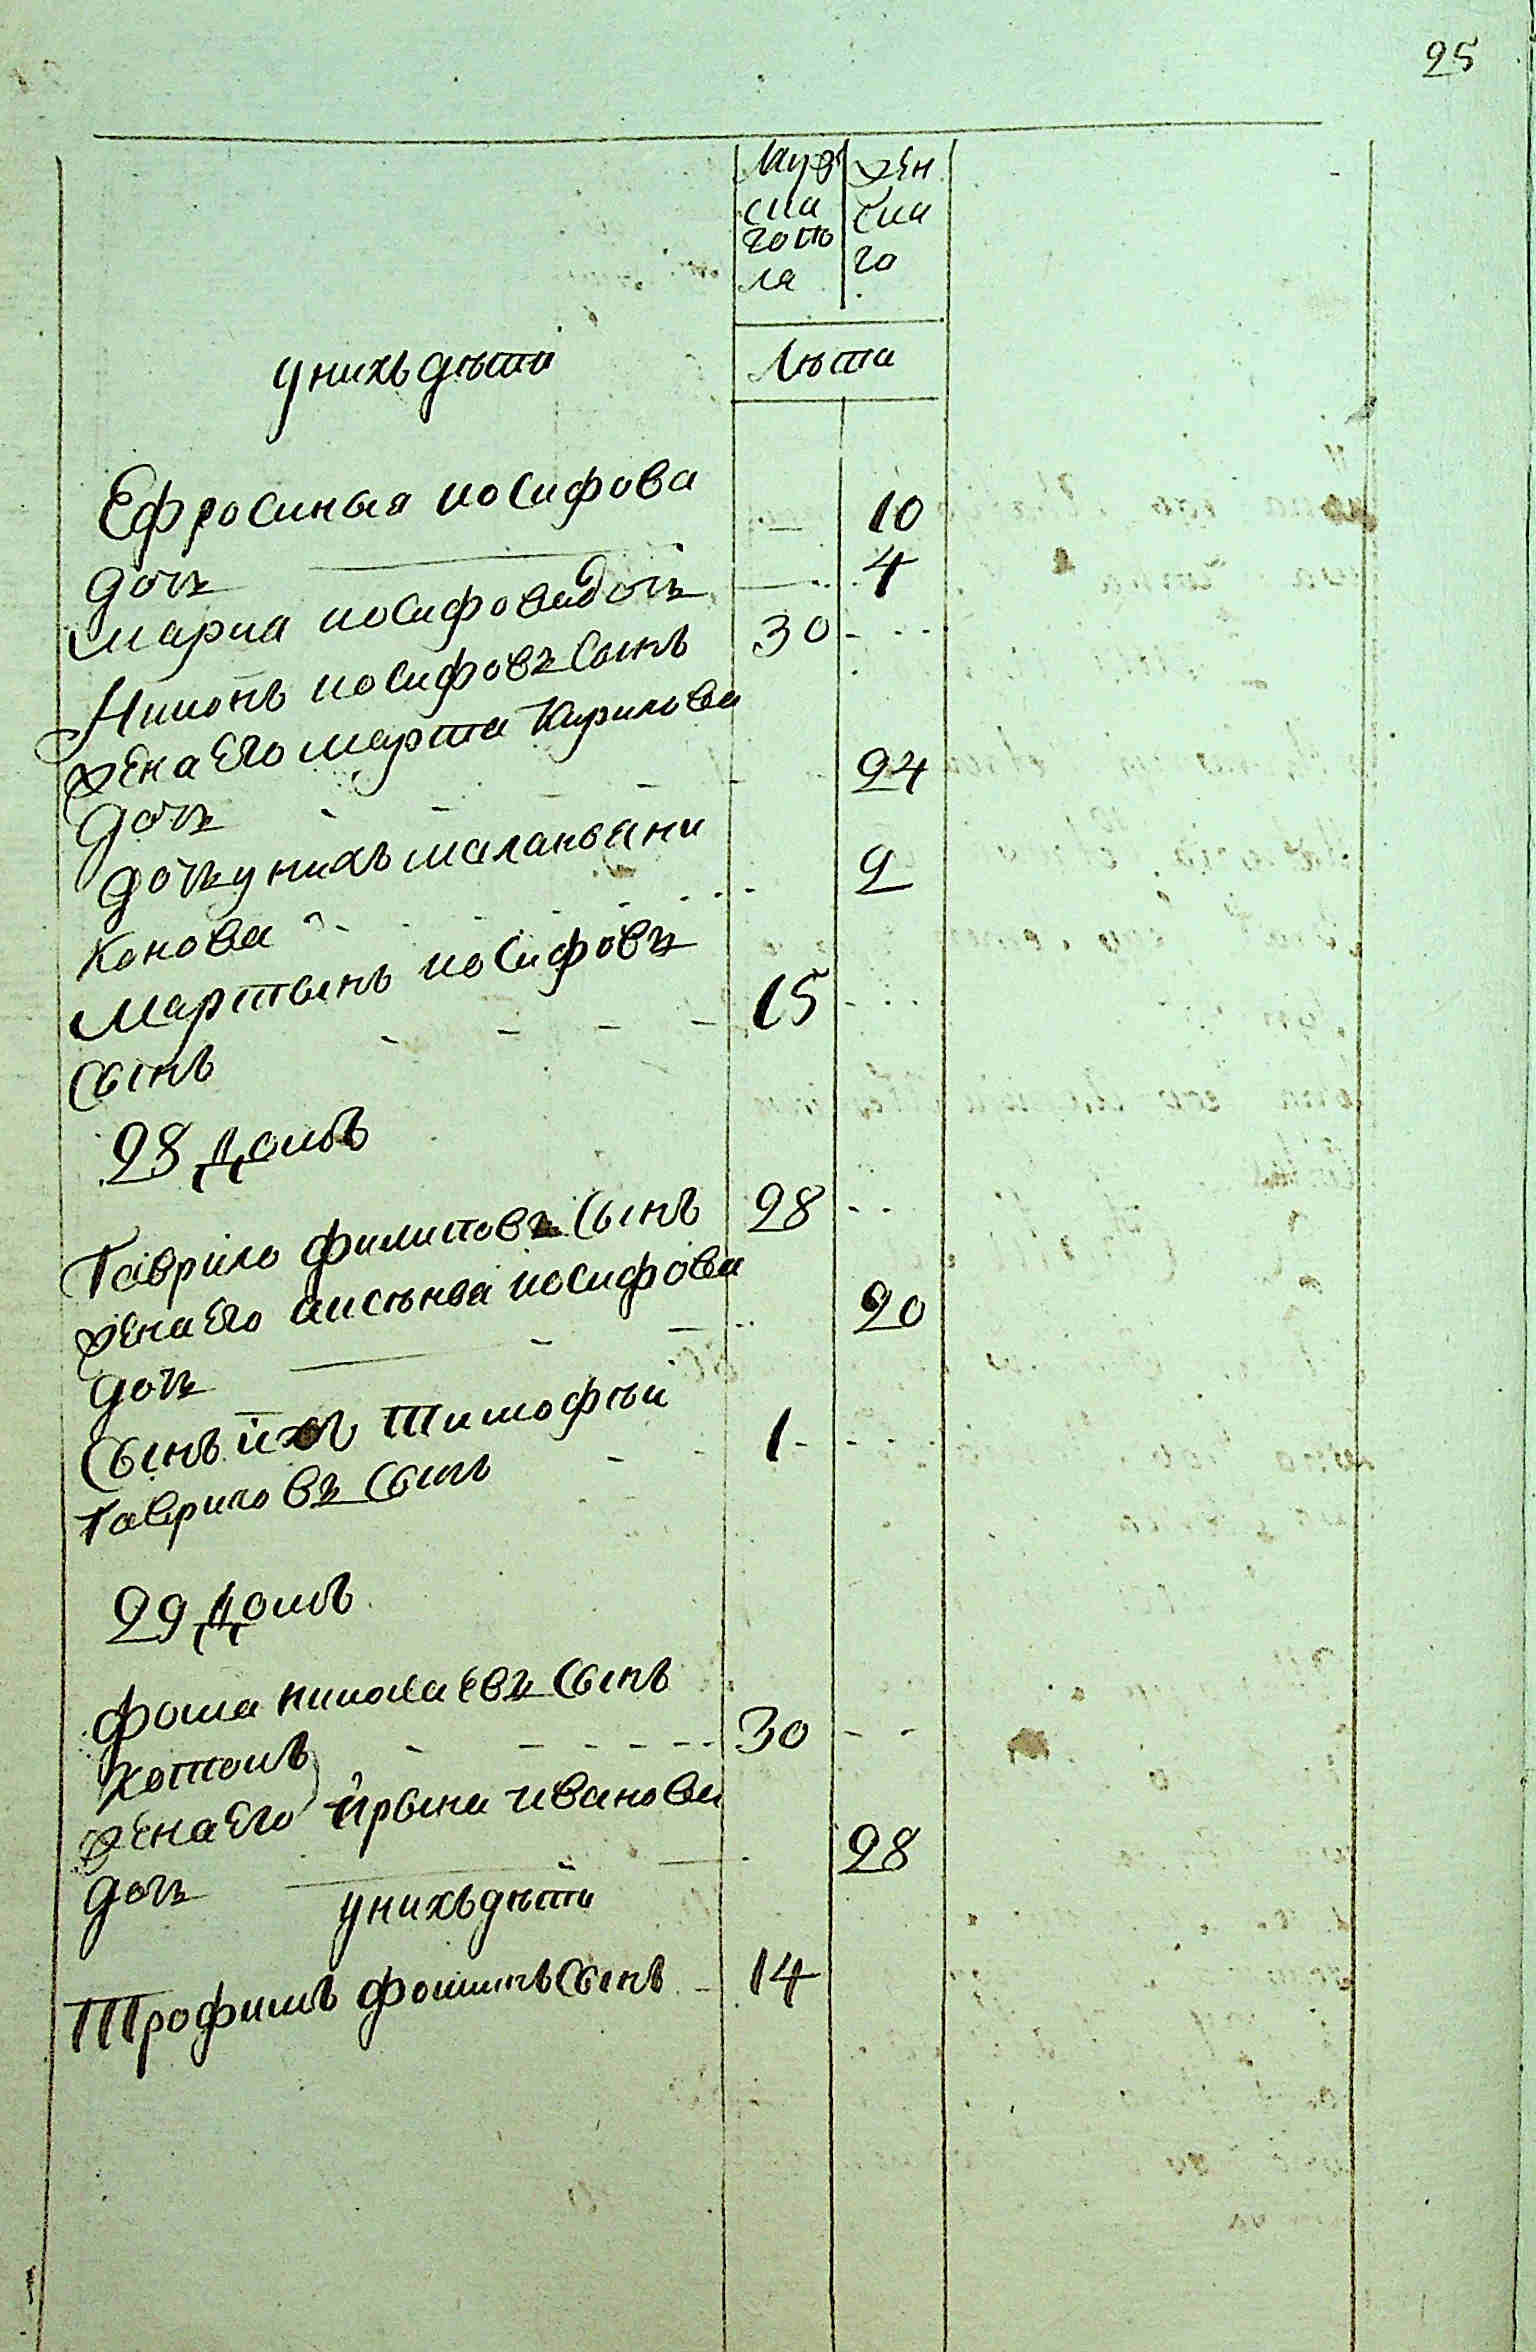 25
Муж
ска
гопо
ла
жен
ска
го
Лѣта
унихъ дѣти
Ефросинья иосифова
дочь 10
мариа иосифова дочь 4
Никонъ иосифовъ сынъ 30
жена его марта Кирилова
дочь 24
дочь унихъ маланья ни
конова 2
мартынъ иосифовъ
сынъ 15
28 домъ
Гаврило филиповъ сынъ 28
жена его аксѣнья иосифова
дочь 20
сынъ ихъ тимофѣи
гавриловъ сынъ 1
29 домъ
фома николаевъ сынъ
30
жена его ирына ивановa
дочь 28
унихъ дѣти
Трофимъ фоминъ сынъ 14